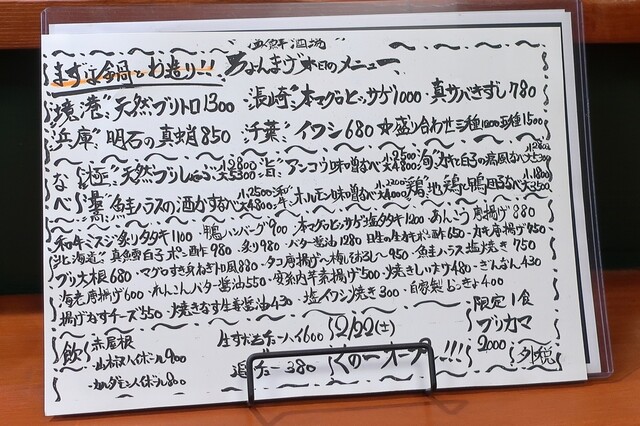 海鮮酒場
まずは金鍋とお造り!! ちょんまげ本日のメニュー
境港〃天然ブリトロ1300 長崎〃本マグロヒッサゲ1000・真サバきずし780
兵庫〃明石の真蛸850 千葉〃イワシ680 盛り合わせ三種1000五種1500
なべ 極〃天然ブリしゃぶ小2800大5300 旨〃アンコウ味噌なべ小2500大4800 旬〃カキと白子の痛風なべ小2800大5300
鮭ハラスの酒かすなべ小2500大4800 ホルモン味噌なべ小2200大4000 鶏〃地鶏と鴨団子なべ小1800大3500
和牛ミスジ炙りタタキ1100・鴨ハンバーグ900・本マグロヒッサゲ塩タタキ1200・あんこう唐揚げ880
北海道〃真鱈白子ポン酢980・炙り980・バター醤油1280・生ガキポン酢650・カキ唐揚げ950
ブリ大根680・マグロすき身ねぎトロ風880・タコ唐揚げ〜梅しそおろし〜950・鮭ハラス塩焼き750
海老唐揚げ600・れんこんバター醤油550・安納芋素揚げ500・焼きしいたけ480・ぎんなん430
揚げなすチーズ550・焼きなす生姜醤油430・塩イワシ焼き300・自家製 400
飲 赤屋根 生すだちチューハイ600 12/22(土) 限定1食
・山椒ハイボール900 追チュー380 くの一オープン!!! ブリカマ
・カルダモンハイボール800 2000
外税